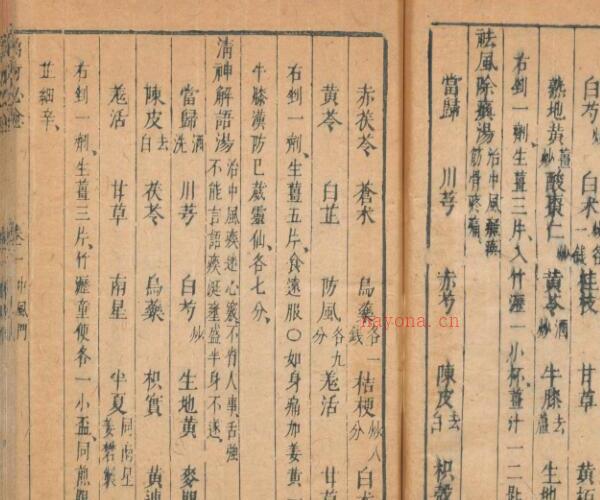 白芍炒 白术炒各一錢 桂枝 甘草
熟地黃薑炒 酸棗仁炒 黃芩酒炒 牛膝去蘆 生地
右剉一劑生薑三片入竹瀝一小杯薑汁一二匙
祛風除痰湯治中風癱瘓筋骨疼痛
當歸 川芎 赤芍 陳皮去白 枳殼
赤茯苓 蒼朮 烏藥各一錢 桔梗炒八分 白术
黃芩 白芷 防風各九分 羌活 甘草
右剉一劑生薑五片食遠服〇如身痛加姜黃一
牛膝漢防巳葳靈仙各七分
清神解語湯治中風痰迷心竅不省人事舌強不能言語痰涎壅盛半身不遂
當歸酒洗 川芎 白芍炒 生地黃 麥門
陳皮去白 茯苓 烏藥 枳實 黃連
羌活 甘草 南星 半夏同南星姜礬製
右剉一劑生薑三片竹瀝童便各一小盃同煎
芷細辛
卷一 中風門
nayona.cn